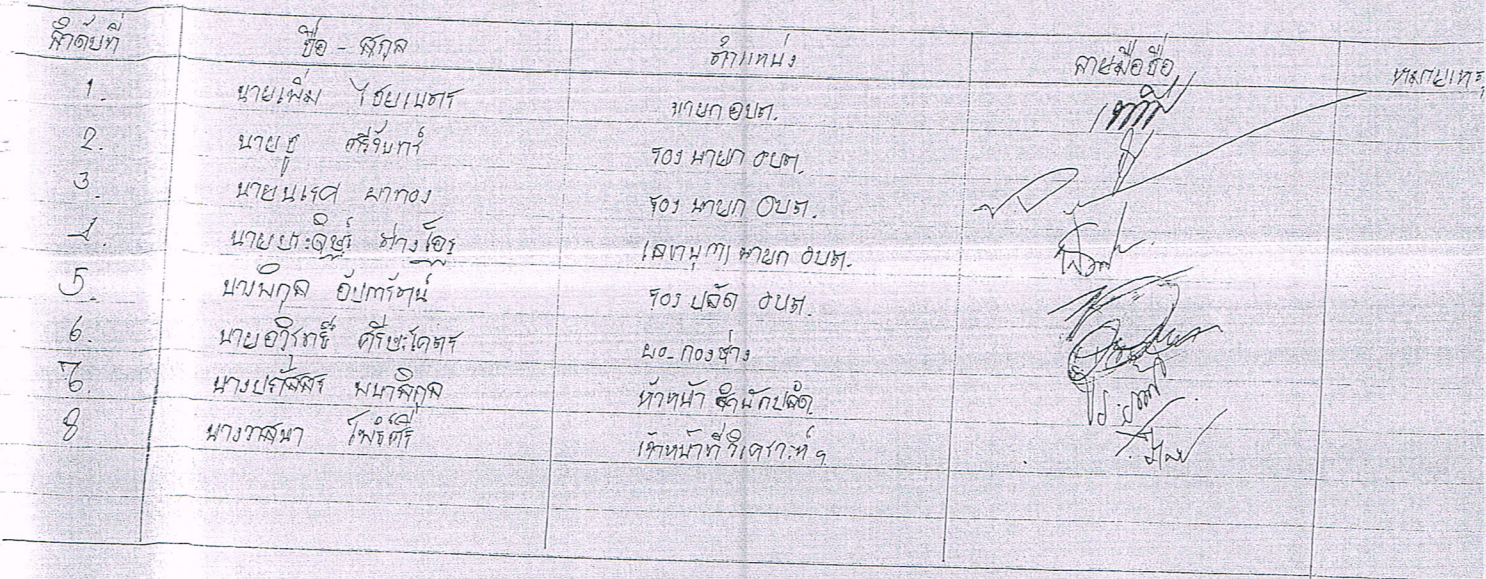 ลำดับที่ ชื่อ - สกุล ตำแหน่ง ลายมือชื่อ หมายเหตุ
1. นายเพิ่ม ไชยเนตร นายก อบต.
2. นายชู ศรีจันทร์ รอง นายก อบต.
3. นายนเรศ ผาทอง รอง นายก อบต.
4. นายประดิษฐ์ เลขานุการ นายก อบต.
5. นางพิกุล รอง ปลัด อบต.
6. นาย ศรีษะโคตร ผอ. กองช่าง
7. นางปภัสสร หัวหน้า สำนักปลัด
8 นางวาสนา โพธิ์ศรี เจ้าหน้าที่วิเคราะห์ ฯ